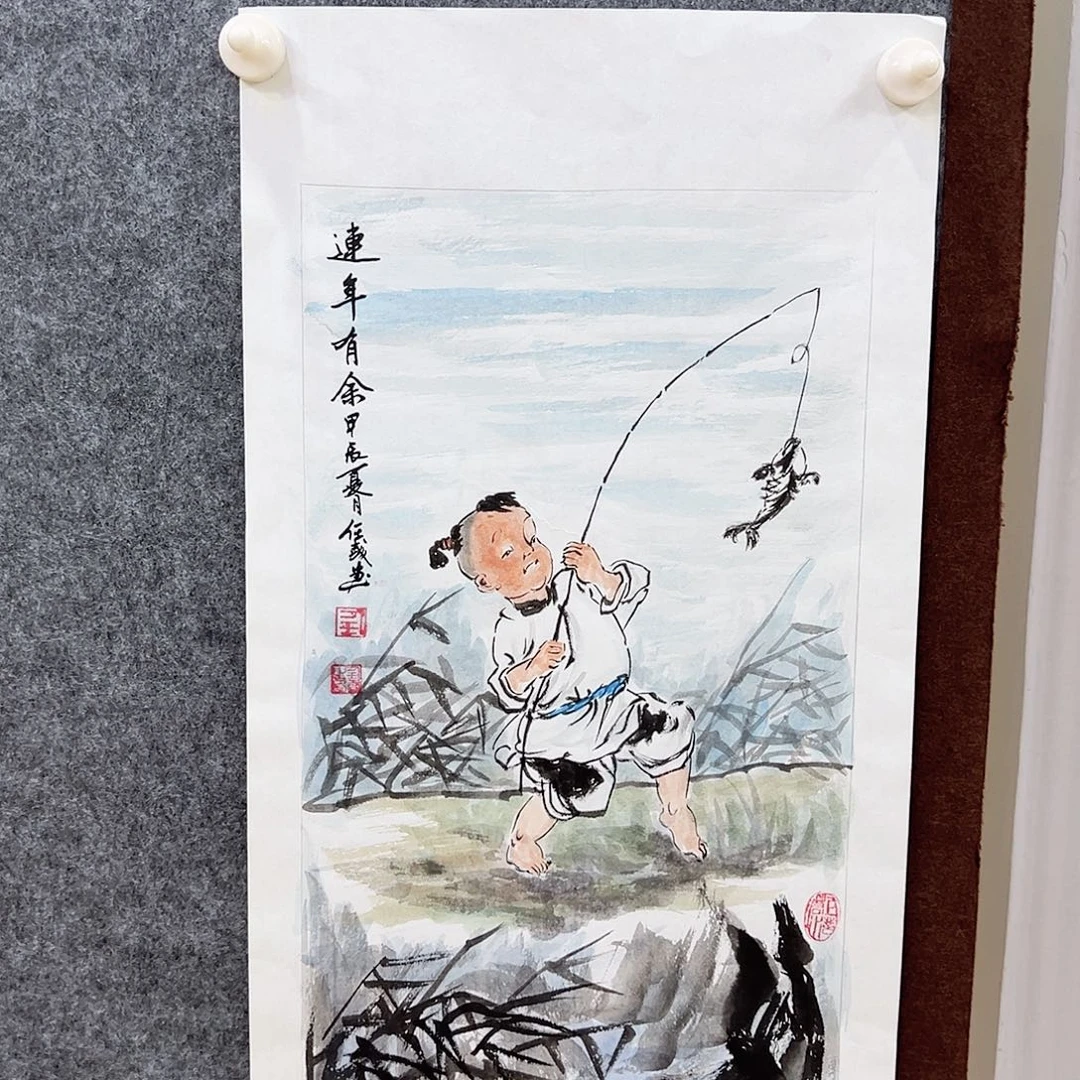 連年有余甲辰夏月任義画